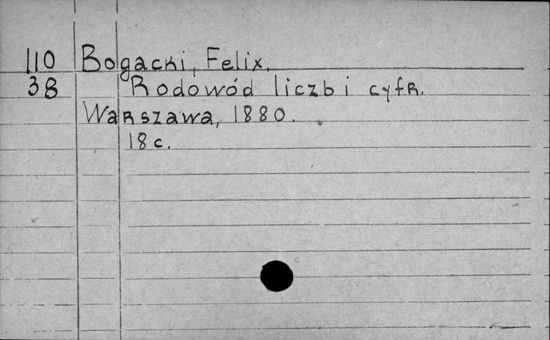 110 Bogacki, Felix.
38 Rodowód liczb i cyfr.
Warszawa, 1880.
18 c.